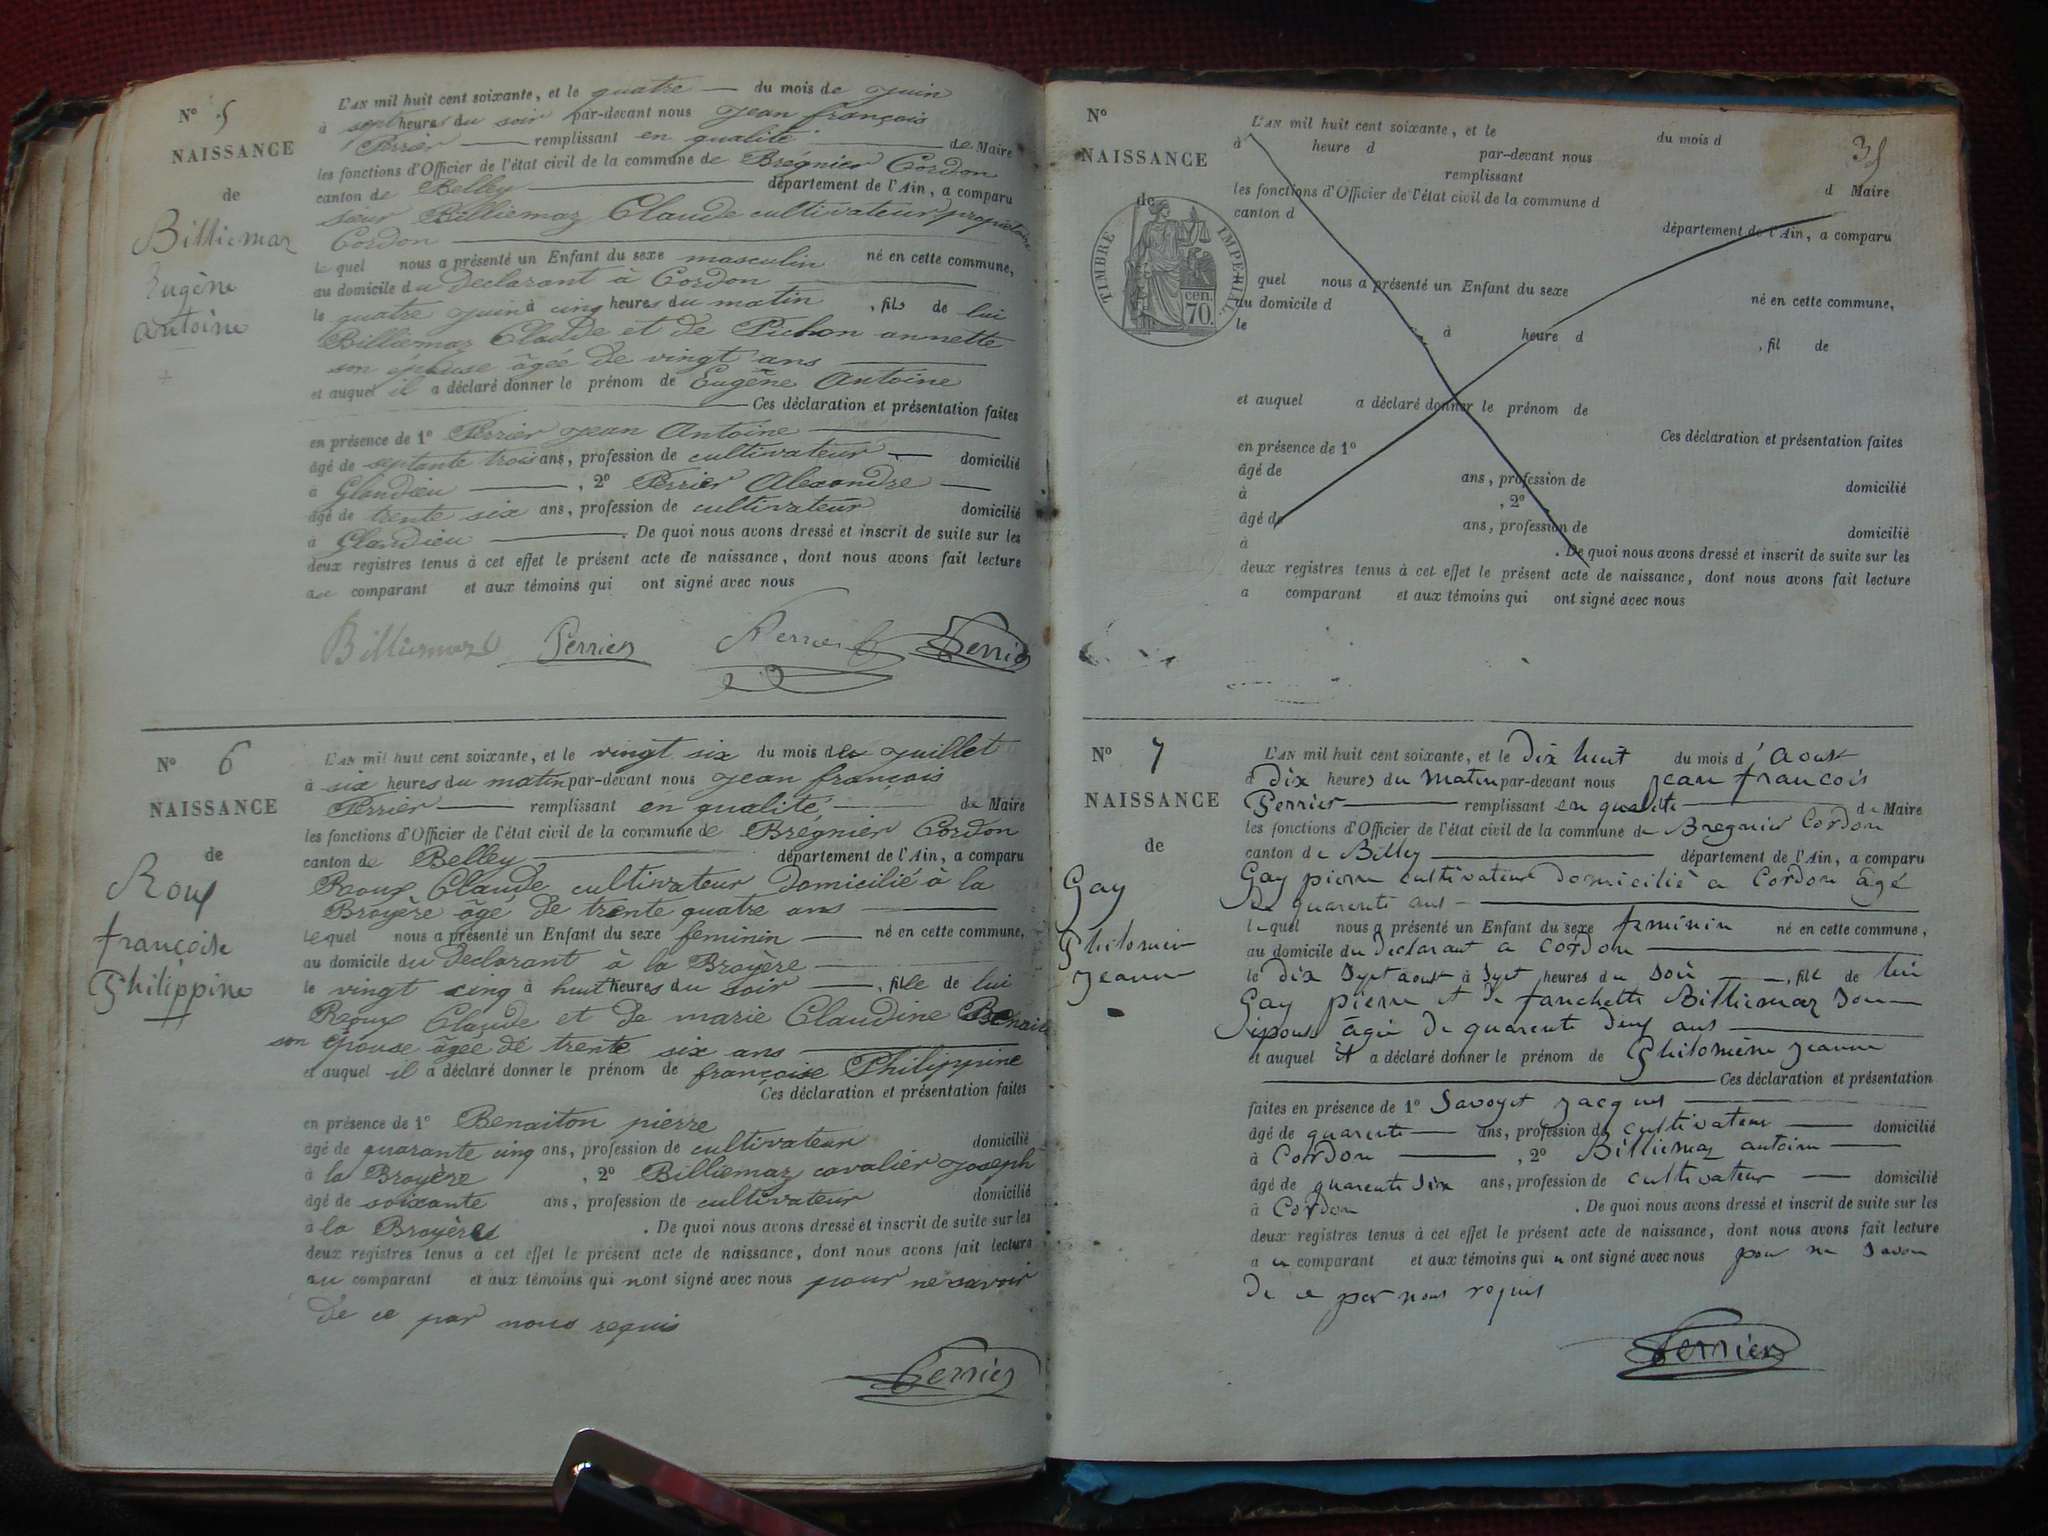 N° 5
NAISSANCE
de
Billiemaz
Eugène
antoine
L'AN mil huit cent soixante, et le quatre du mois de Juin
à sept heures du soir par-devant nous Jean françois
Perrier remplissant en qualité de Maire
les fonctions d'Officier de l'état civil de la commune de Brégnier Cordon
canton de Belley département de l'Ain, a comparu
sieur Billiemaz Claude cultivateur propriétaire
Cordon
le quel nous a présenté un Enfant du sexe masculin né en cette commune,
au domicile du declarant à Cordon
le quatre juin à cinq heures du matin , fils de lui
Billiemaz Claude et de Pichon annette
son épouse âgée de vingt ans
et auquel il a déclaré donner le prénom de Eugène Antoine
Ces déclaration et présentation faites
en présence de 1° Perrier Jean Antoine
âgé de septante trois ans, profession de cultivateur domicilié
à Glandieu , 2° Perrier Alexandre
âgé de trente six ans, profession de cultivateur domicilié
à Glandieu . De quoi nous avons dressé et inscrit de suite sur les
deux registres tenus à cet effet le présent acte de naissance, dont nous avons fait lecture
au comparant et aux témoins qui ont signé avec nous
Billiemaz Perrier Perrier Perrier
N° 6
NAISSANCE
de
Roux
françoise
Philippine
L'AN mil huit cent soixante, et le vingt six du mois de Juillet
à six heures du matin par-devant nous Jean françois
Perrier remplissant en qualité de Maire
les fonctions d'Officier de l'état civil de la commune de Brégnier Cordon
canton de Belley département de l'Ain, a comparu
Roux Claude cultivateur domicilié à la
Broyère âgé de trente quatre ans
lequel nous a présenté un Enfant du sexe feminin né en cette commune,
au domicile du declarant à la Broyère
le vingt cinq à huit heures du soir , fille de lui
Roux Claude et de marie Claudine
son épouse âgée de trente six ans
et auquel il a déclaré donner le prénom de françoise Philippine
Ces déclaration et présentation faites
en présence de 1° Benaiton pierre
âgé de quarante cinq ans, profession de cultivateur domicilié
à la Broyère , 2° Billiemaz cavalier Joseph
âgé de soixante ans, profession de cultivateur domicilié
à la Broyère . De quoi nous avons dressé et inscrit de suite sur les
deux registres tenus à cet effet le présent acte de naissance, dont nous avons fait lecture
au comparant et aux témoins qui nont signé avec nous pour ne savoir
de ce par nous requis
Perrier
N°
NAISSANCE
de
TIMBRE IMPÉRIAL
70 cen.
35
L'AN mil huit cent soixante, et le du mois d
à heure d par-devant nous
remplissant d Maire
les fonctions d'Officier de l'état civil de la commune d
canton d département de l'Ain, a comparu
quel nous a présenté un Enfant du sexe né en cette commune,
au domicile d
le à heure d , fil de
et auquel a déclaré donner le prénom de
Ces déclaration et présentation faites
en présence de 1°
âgé de ans, profession de domicilié
à , 2°
âgé de ans, profession de domicilié
à . De quoi nous avons dressé et inscrit de suite sur les
deux registres tenus à cet effet le présent acte de naissance, dont nous avons fait lecture
a comparant et aux témoins qui ont signé avec nous
N° 7
NAISSANCE
de
Gay
Philomène
Jeanne
L'AN mil huit cent soixante, et le dix huit du mois d'Aoust
à dix heures du matin par-devant nous Jean francois
Perrier remplissant en qualité de Maire
les fonctions d'Officier de l'état civil de la commune de Bregnier Cordon
canton de Billey département de l'Ain, a comparu
Gay pierre cultivateur domicilié a Cordon âgé
de quarente ans
lequel nous a présenté un Enfant du sexe feminin né en cette commune,
au domicile du declarant a Cordon
le dix sept aout à sept heures du soir , fille de lui
Gay pierre et de fanchette Billiemaz son
épouse âgée de quarente deux ans
et auquel il a déclaré donner le prénom de Philomène Jeanne
Ces déclaration et présentation
faites en présence de 1° Savoyet Jacques
âgé de quarente ans, profession de cultivateur domicilié
à Cordon , 2° Billiemaz antoine
âgé de quarente six ans, profession de cultivateur domicilié
à Cordon . De quoi nous avons dressé et inscrit de suite sur les
deux registres tenus à cet effet le présent acte de naissance, dont nous avons fait lecture
au comparant et aux témoins qui n ont signé avec nous pour ne savoir
de ce par nous requis
Perrier